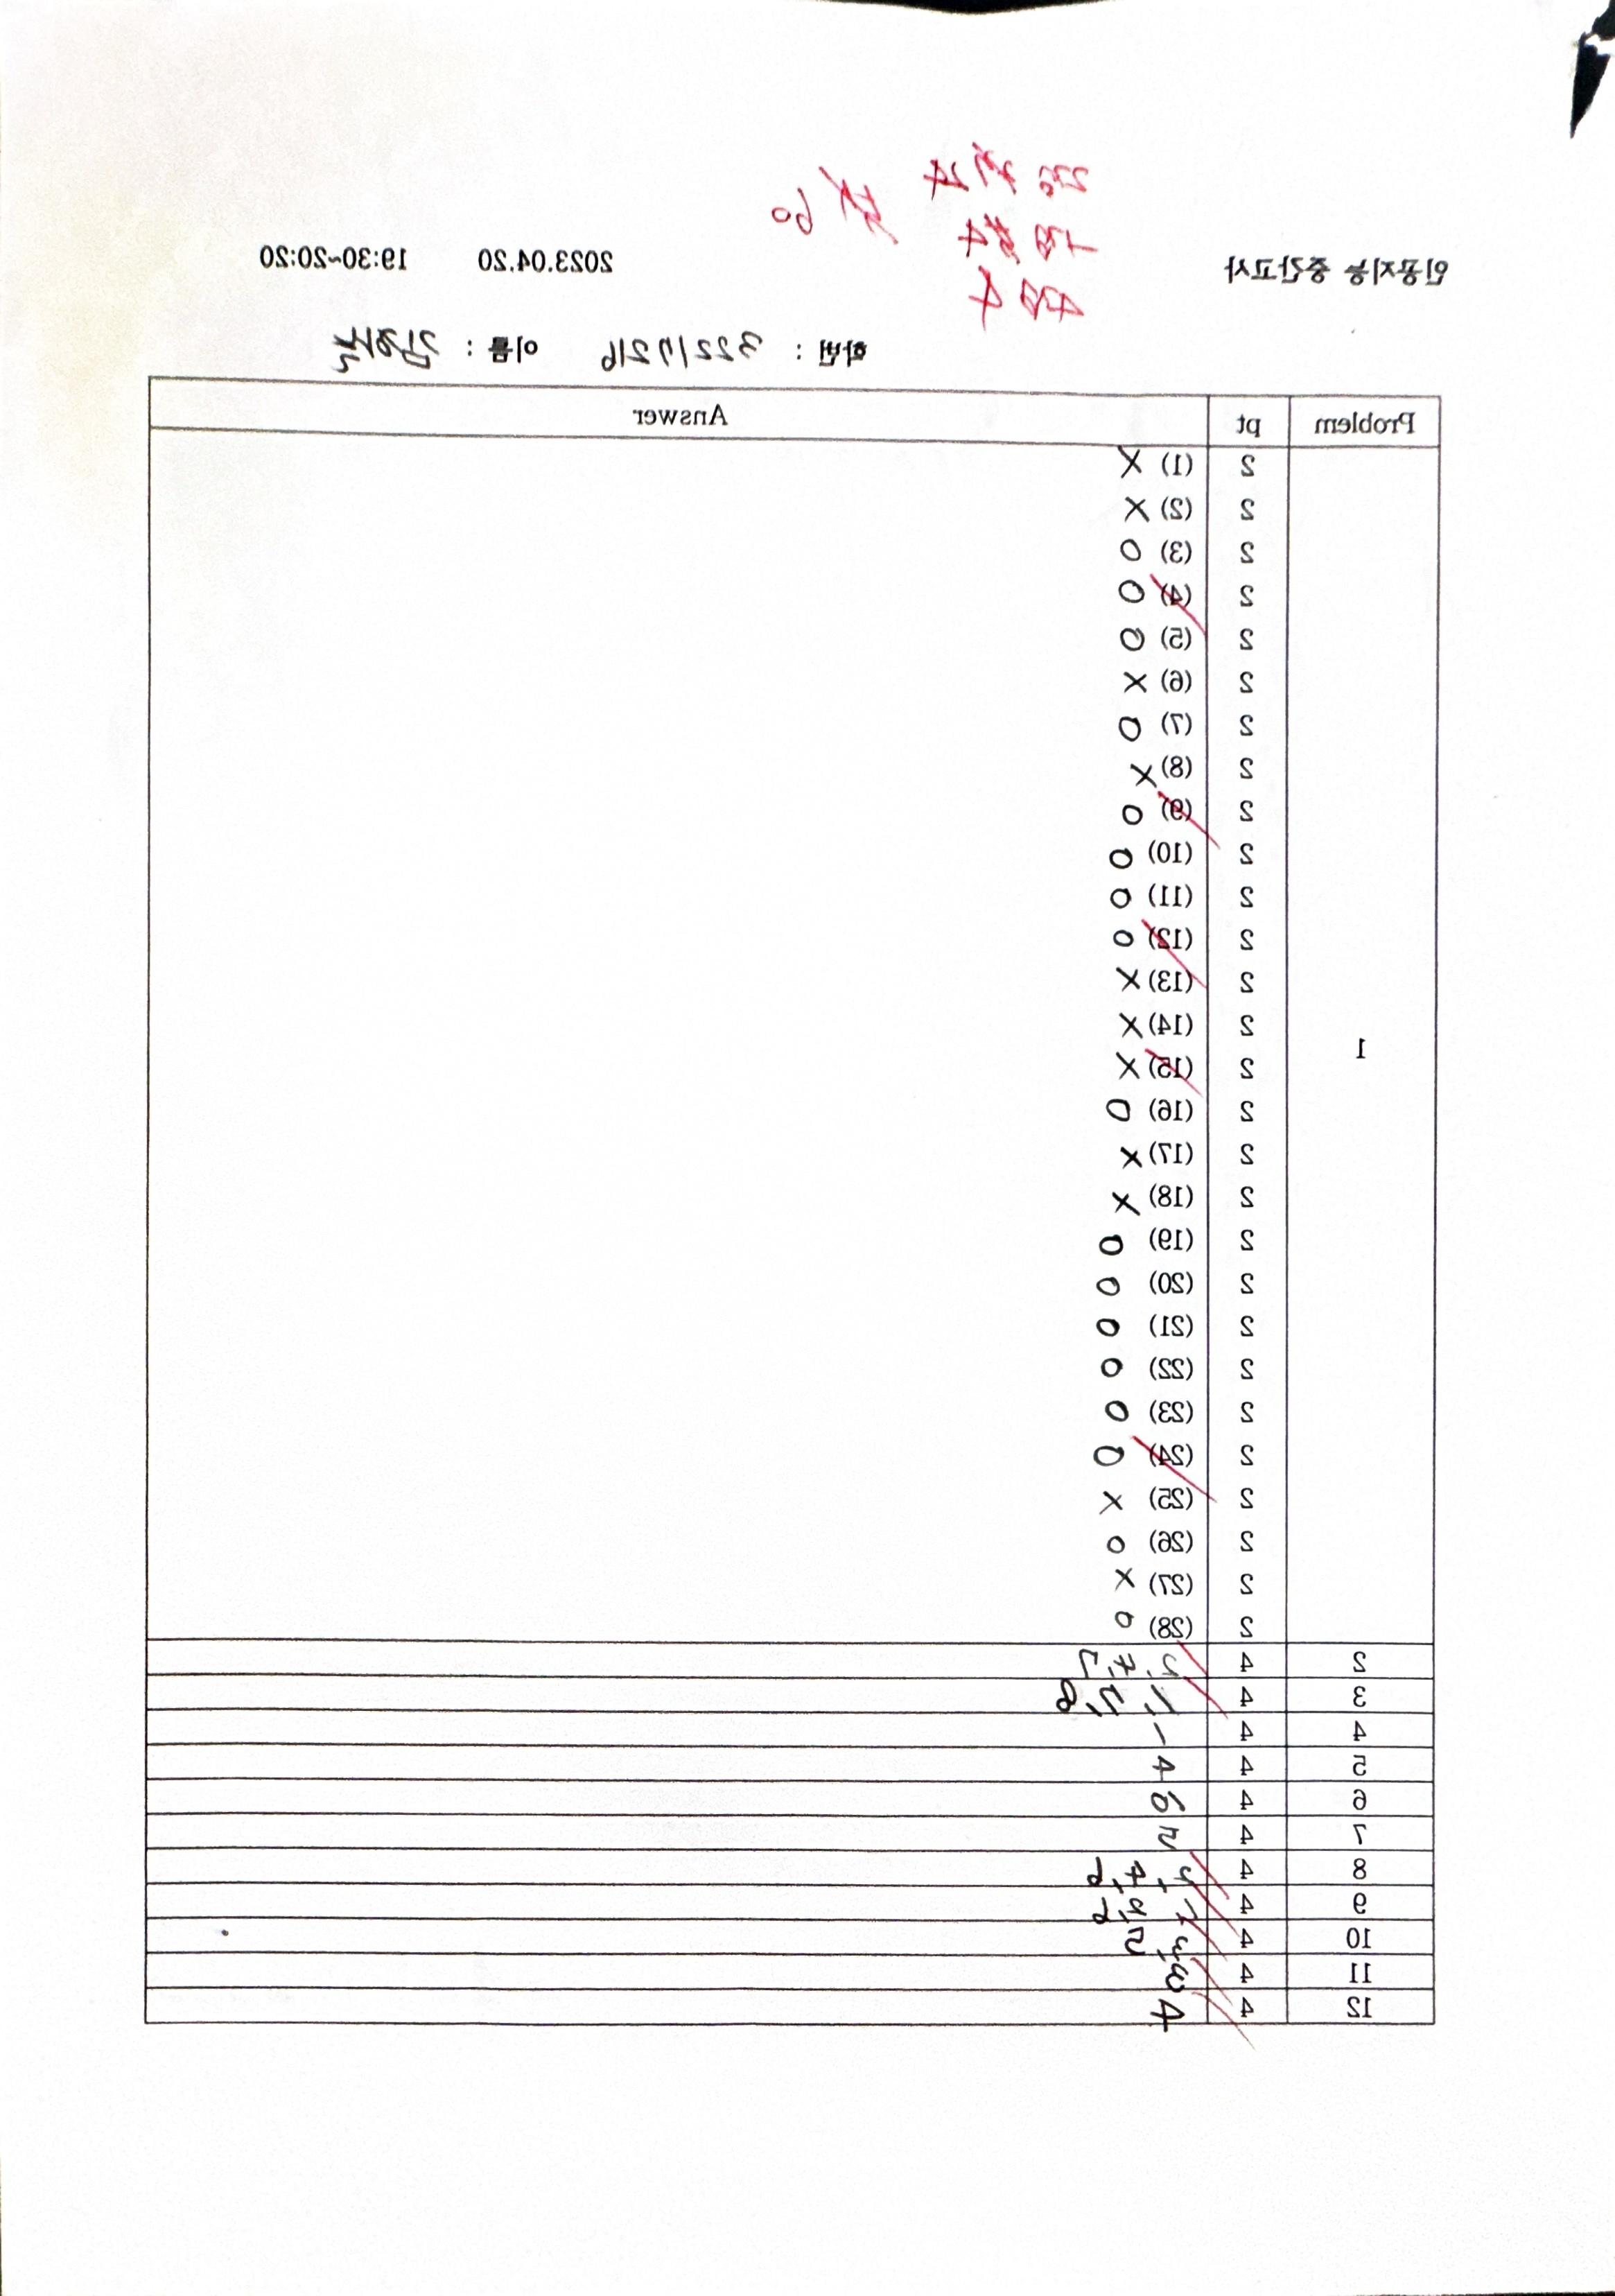 인공지능 중간고사 2023.04.20 19:30~20:20
60
학번 : 32217216 이름 :
Problem pt Answer
1
2 (1) X
2 (2) X
2 (3) O
2 (4) O
2 (5) O
2 (6) X
2 (7) O
2 (8) X
2 (9) O
2 (10) O
2 (11) O
2 (12) O
2 (13) X
2 (14) X
2 (15) X
2 (16) O
2 (17) X
2 (18) X
2 (19) O
2 (20) O
2 (21) O
2 (22) O
2 (23) O
2 (24) O
2 (25) X
2 (26) O
2 (27) X
2 (28) O
2 4
3 4
4 4 1
5 4 4
6 4 6
7 4 2
8 4
9 4
10 4
11 4 3
12 4 4